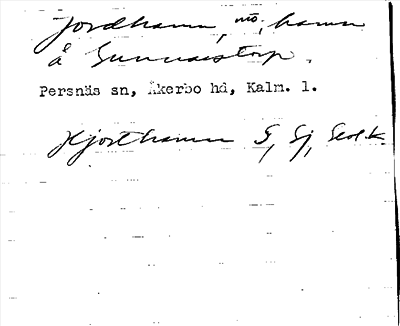 Jordhamn, mo, hamn
å Gunnarstorp.
Persnäs sn, Åkerbo hd, Kalm. l.
Hjorthamn G, Sj, Geol.k.